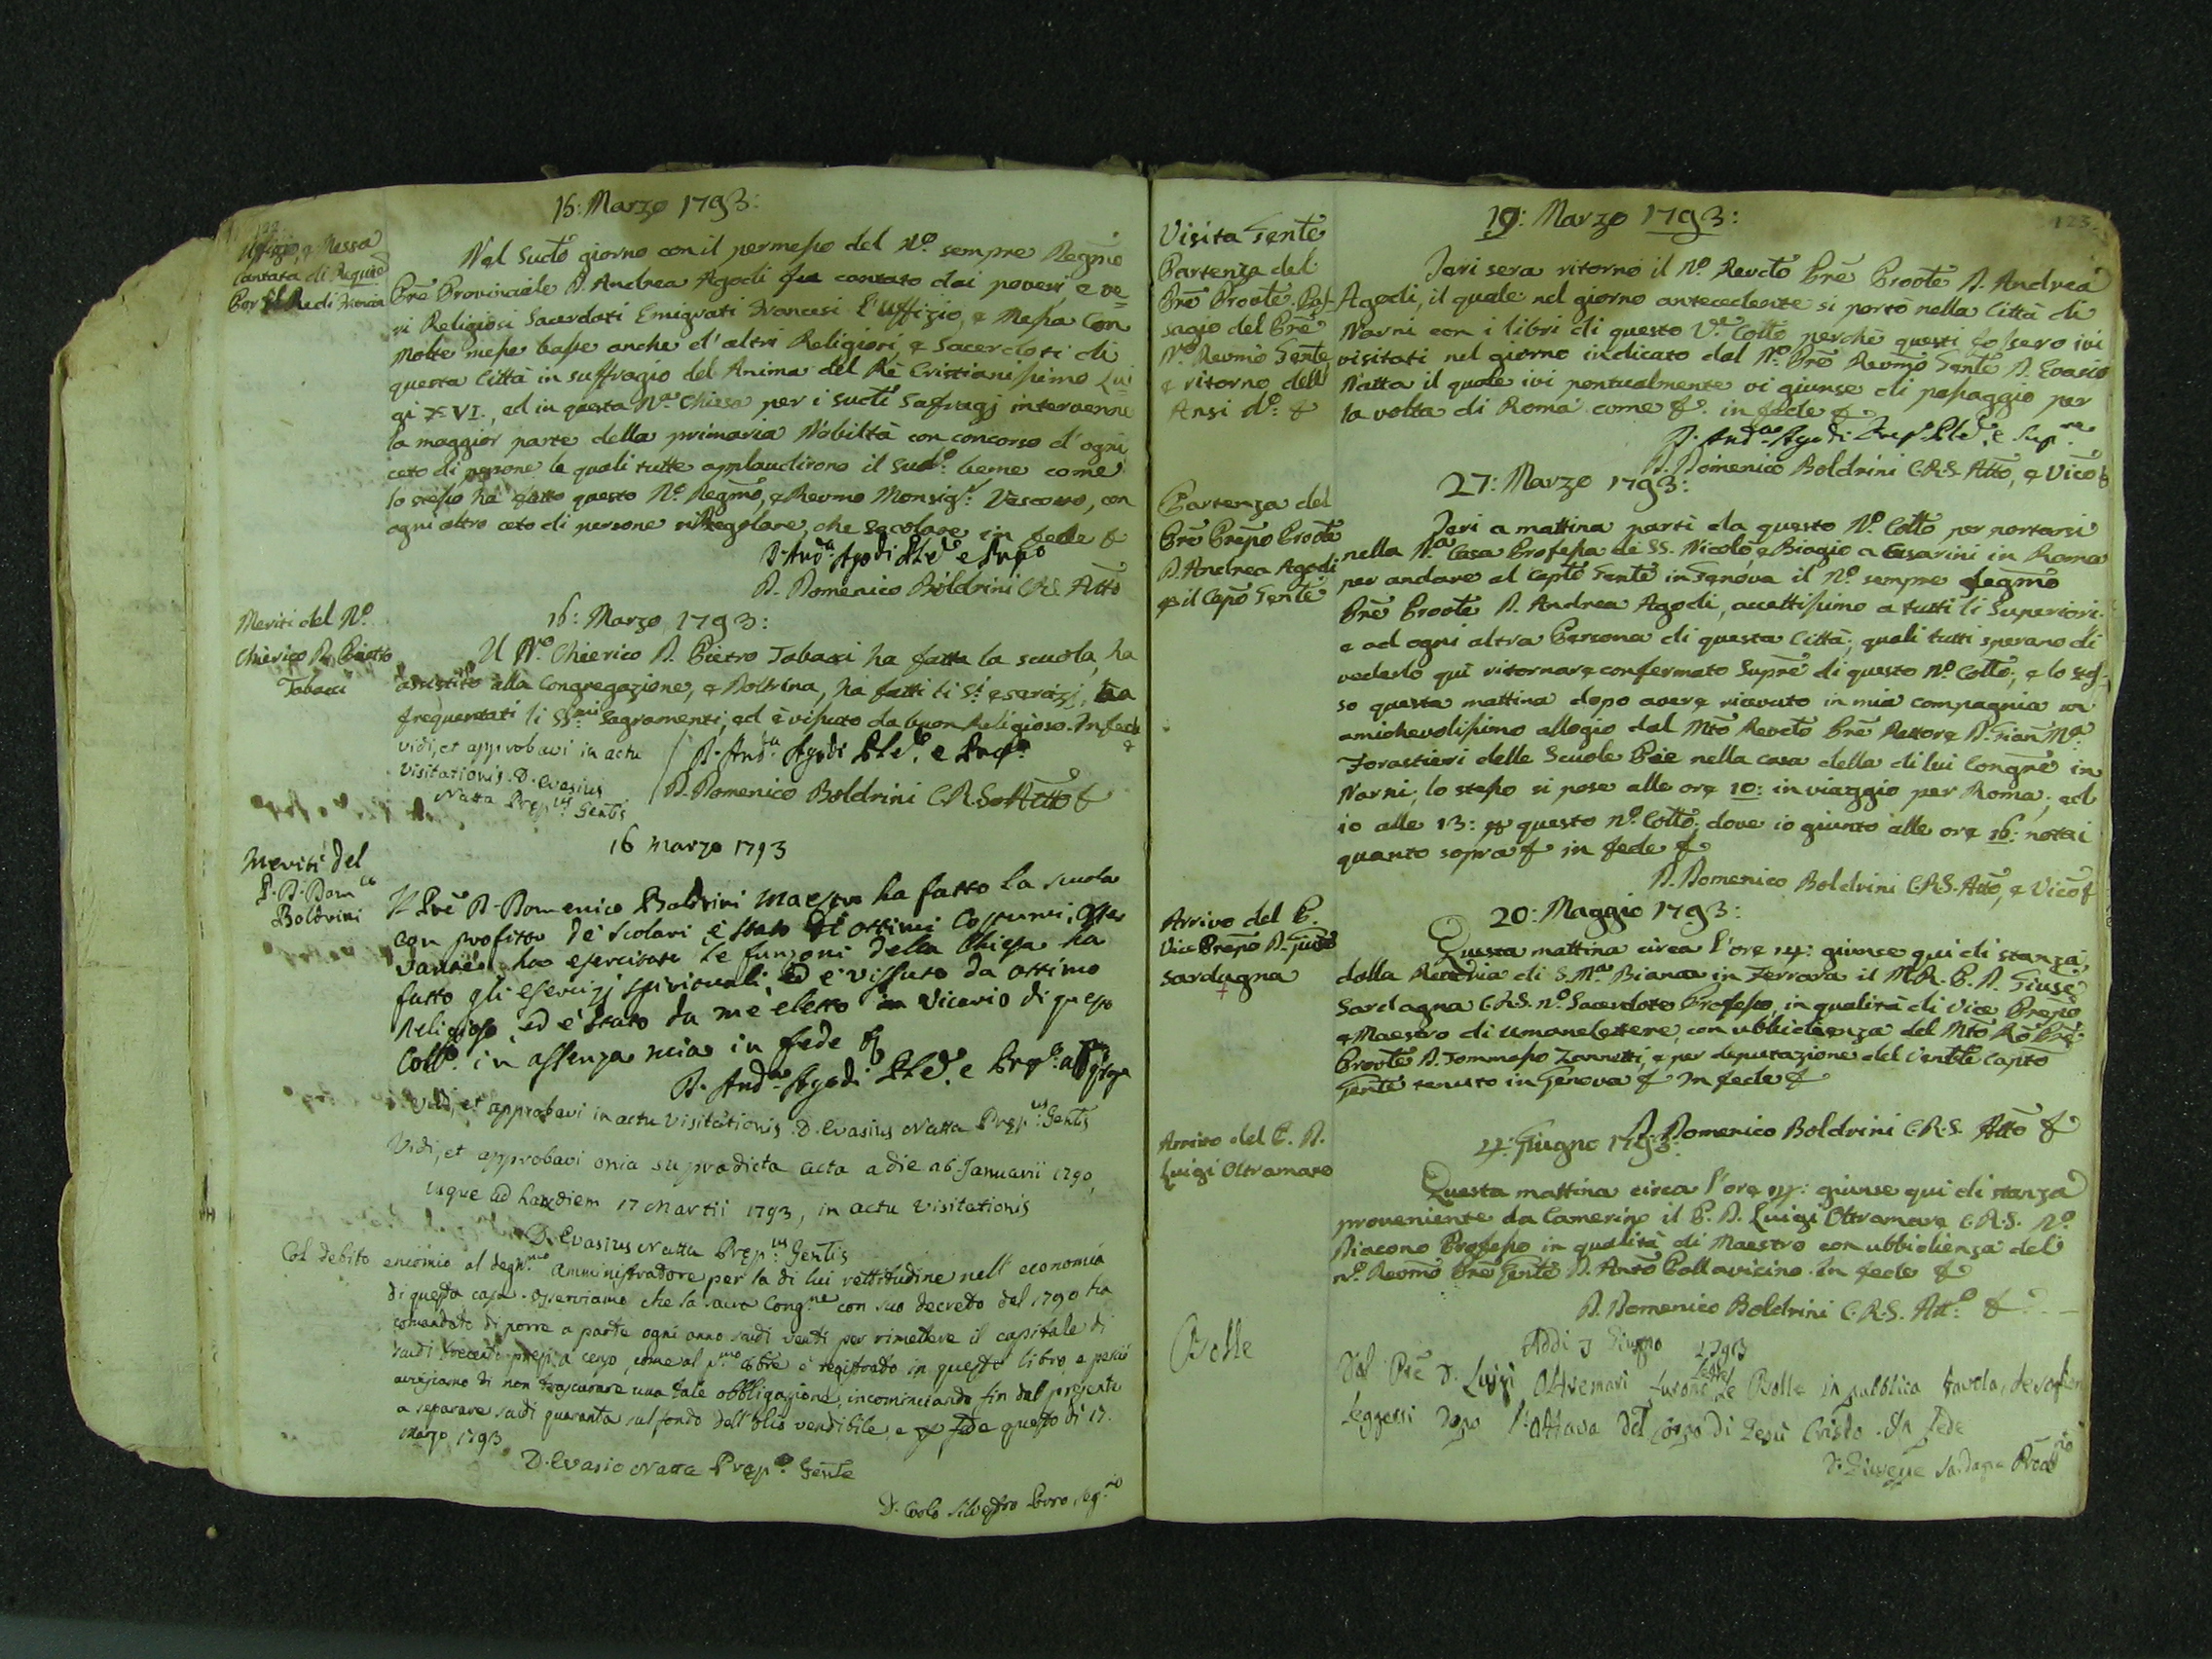 122
Uffizio, e Messa
Cantata di Requie
Per il Re di Francia
16: Marzo 1793:
Nel Sucto giorno con il permesso del Nº sempre Degmo
Prẽ Provinciale D. Andrea Agodi fu cantato dai poveri, e ve=
ri Religiosi Sacerdoti Emigrati Francesi l'Uffizio, e Messa Con
molte messe basse anche d'altri Religiosi, e Sacerdoti di
questa Città in suffragio del Anima del Rè Cristianissimo Lui
gi XVI., ed in questa Nª Chiesa per i sucti Safragj intervenne
la maggior parte della primaria Nobiltà con concorso d'ogni
ceto di persone le quali tutte applaudirono il Sudº. bene come
lo stesso ha fatto questo Nº. Degmo, e Revmo Monsigr. Vescovo, con
ogni altro ceto di persone si Regolare, che Secolare in fede &
D. Andª. Agodi e Prepº
D. Domenico Boldrini C.R.S. Atto
Meriti del Nº.
Chierico D. Pietro
Tabacci
16: Marzo 1793:
Il Nº. Chierico D. Pietro Tabacci ha fatta la scuola, ha
assistito alla Congregazione, e Dottrina, ha fatti li Si. esercizj, ha
frequentati li SSmi Sagramenti, ed è vissuto da buon Religioso. In fede
&
vidi, et approbavi in actu
visitationis. D. Evasius
Natta Prepus. Gentis
D. Andª Agodi e Prepº
D. Domenico Boldrini C.R.S. Atto &
Meriti del
P. D. Domco
Boldrini
16 Marzo 1793
Il Prẽ D. Domenico Boldrini Maestro ha fatto la scuola
con profitto de' scolari è stato di ottimi costumi, osser
vante, ha esercitate le funzioni della Chiesa ha
fatto gli esercizj spirituali, ed è vissuto da ottimo
Religioso, ed è stato da me eletto in Vicario di questo
Collº. in assenza mia in fede &
D. Andª. Agodi e Prepº.
Vidi, et approbavi in actu visitationis. D. Evasius Natta Prepus. Gentis
Vidi, et approbavi omnia supradicta acta a die 26 Januarii 1790,
usque ad hanc diem 17 Martii 1793, in actu Visitationis
D. Evasius Natta Prepus. Gentis
Col debito encomio al degnmo Amministradore per la di lui rettitudine nell' economia
di questa casa. Osserviamo che la sacra Congne con suo decreto del 1790 ha
comandato di porre a parte ogni anno scudi venti per rimettere il capitale di
scudi trecento presi a censo, come al pmo 8bre è registrato in questo libro, e perciò
avvisiamo di non trascurare una tale obbligazione, incominciando fin dal presente
a separare scudi quaranta sul fondo dell'olio vendibile, e in fede questo dì 17.
Marzo 1793
D. Evasio Natta Prepº. Gente
D. Carlo Silvestro Porro Segrio
123.
Visita Gente
Partenza del
Prẽ Provte. Pas=
sagio del Prẽ
Nº. Revmo Gente
e ritorno dell'
Ansi dº. &
19: Marzo 1793:
Jeri sera ritornò il Nº. Revdo Prẽ Provte D. Andrea
Agodi, il quale nel giorno antecedente si portò nella Città di
Narni con i libri di questo Ve. Collo perchè questi fossero ivi
visitati nel giorno indicato dal Nº. Prẽ Revmo Gente D. Evasio
Natta il quale ivi pontualmente vi giunse di passaggio per
la volta di Roma come &. in fede &
D. Andª Agodi Prepº. e Supre
D. Domenico Boldrini C.R.S. Atto, e Vico &
Partenza del
Prẽ Prepo Provte
D. Andrea Agodi
per il Capo Gente
27: Marzo 1793:
Jeri a mattina partì da questo Nº. Collo per portarsi
nella Nª. Casa Professa de SS. Nicolò, e Biagio a Cesarini in Roma
per andare al Capto Gente in Genova il Nº. sempre degmo
Prẽ Provte D. Andrea Agodi, accettissimo a tutti li Superiori.
e ad ogni altra Persona di questa Città, quali tutti sperano di
vederlo quì ritornare confermato Supre di questo Nº. Collo; e lo stes=
so questa mattina dopo avere ricevuto in mia compagnia un
amichevolissimo allogio dal Mto Revdo Prẽ Rettore D. Gian Mª.
Forastieri delle Scuole Pie nella casa della di lui Congne in
Narni, lo stesso si pose alle ore 10: in viaggio per Roma, ed
io alle 13: per questo Nº. Collo: dove io giunto alle ore 16: notai
quanto sopra & in fede &
D. Domenico Boldrini C.R.S. Atto, e Vico &
Arrivo del P.
Vice Prepo D. Giuse
Sardagna
20: Maggio 1793:
Questa mattina circa l'ore 14: giunse qui di stanza
dalla di S. Mª Bianca in Ferrara il M.R.P.D. Giuse
Sardagna C.R.S. nº. Sacerdote Professo, in qualità di Vice Prepo
e Maestro di umane lettere, con ubbidienza del Mto Rdo Prẽ
Provte D. Tommaso Zannetti, e per deputazione del Venble Capto
Gente tenuto in Genova & In fede &
D. Domenico Boldrini C.R.S. Atto &
Arrivo del P. D.
Luigi Oltramare
4: Giugno 1793:
Questa mattina circa l'ore 14: giunse qui di stanza
proveniente da Camerino il P. D. Luigi Oltramare C.R.S. Nº.
Diacono Professo in qualità di Maestro con ubbidienza del
nº. Revmo Prẽ Gente D. Anto Pallavicino. In fede &
D. Domenico Boldrini C.R.S. Attº. &
Bolle
Addi 7 Giugno 1793
Dal Prẽ D. Luigi Oltremari furono lette le Bolle in pubblica tavola,
leggersi dopo l'ottava del Corpo di Gesù Cristo. In fede
D. Giuseppe Sardagna